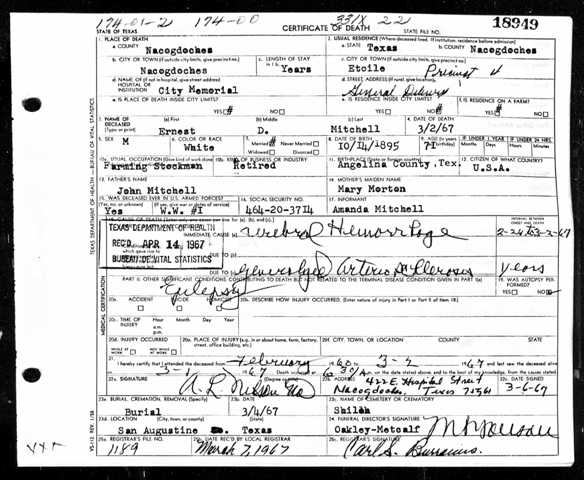 174-01-2 174-00 331X 22
STATE OF TEXAS CERTIFICATE OF DEATH STATE FILE NO. 18949
1. PLACE OF DEATH 2. USUAL RESIDENCE (Where deceased lived. If institution: residence before admission)
a. COUNTY Nacogdoches a. STATE Texas b. COUNTY Nacogdoches
b. CITY OR TOWN (If outside city limits, give precinct no.) Nacogdoches c. LENGTH OF STAY Years c. CITY OR TOWN (If outside city limits, give precinct no.) Etoile Precinct 4
d. NAME OF (If not in hospital, give street address) HOSPITAL OR INSTITUTION City Memorial d. STREET ADDRESS (If rural, give location) General Delivery
e. IS PLACE OF DEATH INSIDE CITY LIMITS? YES NO e. IS RESIDENCE INSIDE CITY LIMITS? YES NO f. IS RESIDENCE ON A FARM? YES NO
3. NAME OF DECEASED (Type or print) (a) First Ernest (b) Middle D. (c) Last Mitchell 4. DATE OF DEATH 3/2/67
5. SEX M 6. COLOR OR RACE White 7. Married Never Married Widowed Divorced 8. DATE OF BIRTH 10/14/1895 9. AGE 71 IF UNDER 1 YEAR Months Days IF UNDER 24 HRS. Hours Minutes
10a. USUAL OCCUPATION (Give kind of work done) Farming Stockman 10b. KIND OF BUSINESS OR INDUSTRY Retired 11. BIRTHPLACE (State or foreign country) Angelina County, Tex. 12. CITIZEN OF WHAT COUNTRY? U.S.A.
13. FATHER'S NAME John Mitchell 14. MOTHER'S MAIDEN NAME Mary Morton
15. WAS DECEASED EVER IN U.S. ARMED FORCES? Yes W.W. #I 16. SOCIAL SECURITY NO. 464-20-3714 17. INFORMANT Amanda Mitchell
TEXAS DEPARTMENT OF HEALTH
REC'D APR 14 1967
BUREAU OF VITAL STATISTICS
IMMEDIATE CAUSE (a) Cerebral Hemorrhage
DUE TO
DUE TO Generalized Arteriosclerosis years
PART II. OTHER SIGNIFICANT CONDITIONS CONTRIBUTING TO DEATH BUT NOT RELATED TO THE TERMINAL DISEASE CONDITION GIVEN IN PART I(a) 19. WAS AUTOPSY PERFORMED? YES NO
Epilepsy
20a. ACCIDENT SUICIDE HOMICIDE 20b. DESCRIBE HOW INJURY OCCURRED. (Enter nature of injury in Part I or Part II of item 18.)
20c. TIME OF INJURY Hour Month Day Year a.m. p.m.
20d. INJURY OCCURRED WHILE AT WORK NOT WHILE AT WORK 20e. PLACE OF INJURY (e.g. in or about home, farm, factory, street, office building, etc.) 20f. CITY, TOWN, OR LOCATION COUNTY STATE
21. I hereby certify that I attended the deceased from February 1960 3-2 1967 and last saw the deceased alive
22a. SIGNATURE 22b. ADDRESS 422 E. Hospital Street Nacogdoches, Texas 75961 22c. DATE SIGNED 3-6-67
23a. BURIAL, CREMATION, REMOVAL (Specify) Burial 23b. DATE 3/4/67 23c. NAME OF CEMETERY OR CREMATORY Shiloh
23d. LOCATION (City, town, or county) (State) San Augustine Co. Texas 24. FUNERAL DIRECTOR'S SIGNATURE Oakley-Metcalf
25a. REGISTRAR'S FILE NO. 1189 25b. DATE REC'D BY LOCAL REGISTRAR March 7, 1967 25c. REGISTRAR'S SIGNATURE
TEXAS DEPARTMENT OF HEALTH — BUREAU OF VITAL STATISTICS
MEDICAL CERTIFICATION